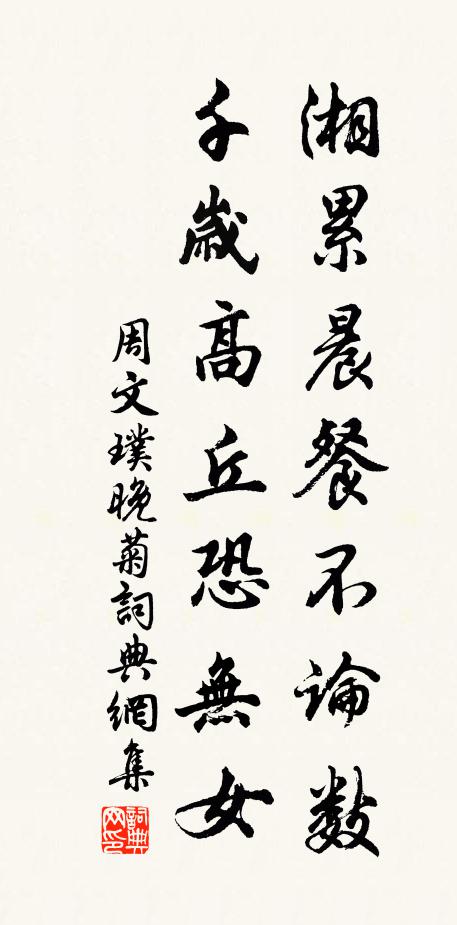 湘累晨餐不論數
千歲高丘恐無女
周文璞晚菊詞典網集
詞典網印